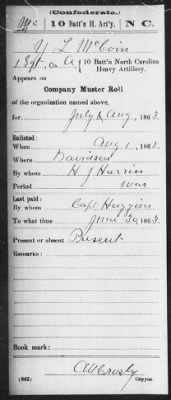 (Confederate.)
Mc | 10 Batt'n H. Art'y. | N C.
L McCoin
1 Sgt, Co. A, 10 Batt'n North Carolina
Heavy Artillery.
Appears on
Company Muster Roll
of the organization named above,
for July & Aug, 1863.
Enlisted:
When Aug 1, 186
Where Davidson
By whom H J Harris
Period war
Last paid:
By whom Capt Huggins
To what time June 30, 1863.
Present or absent Present
Remarks:
Book mark:
(642)
Copyist.